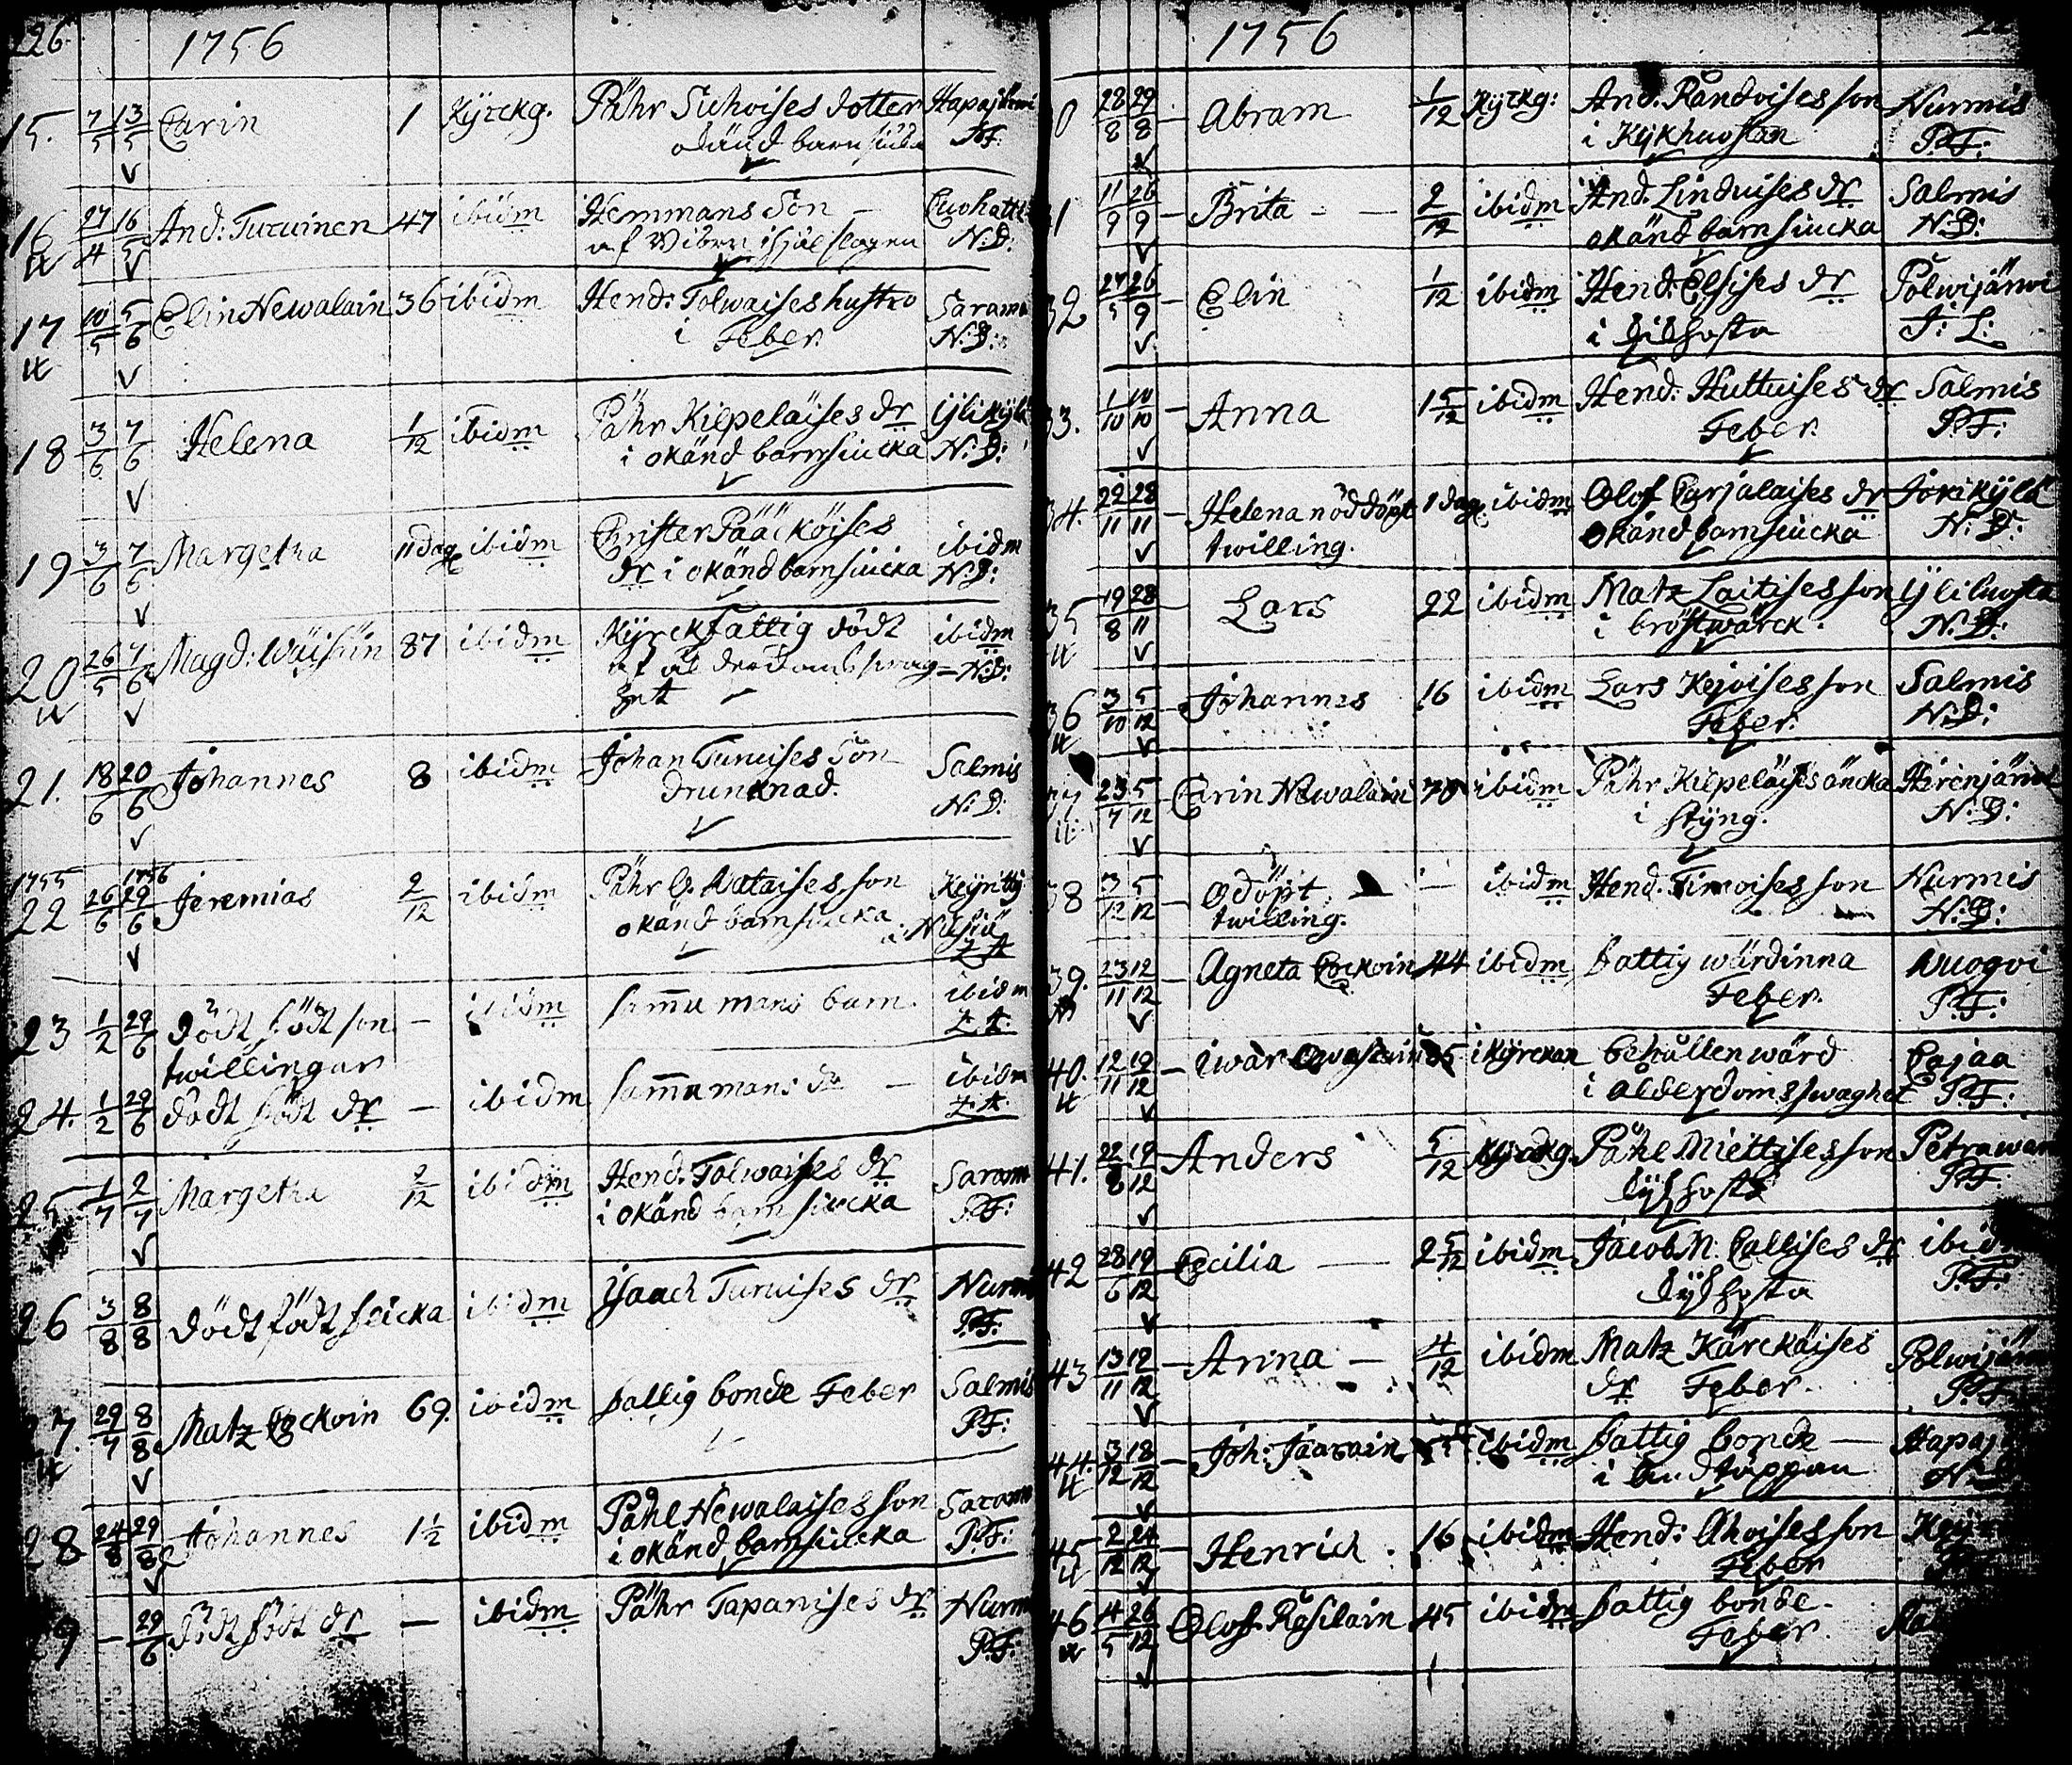 226. 1756
15. 7/5 13/5 Carin 1 Kyrckg. Påhr Suhoises dotter Hapajärwi
okänd barnsiuka P.F:
16 27/4 16/5 And: Turuinen 47 ibidm Hemmans Son —
af Wiben ihjälslagen N:D:
17 10/5 5/6 Elin Newalain 36 ibidm Hend: Tolwaises hustro Sarama
i Feber N:D:
18 3/6 7/6 Helena 1/12 ibidm Påhr Kilpeläises dr Ylikylä
i okänd barnsiucka N:D:
19 3/6 7/6 Margetha 11 dag. ibidm Christer Pääcköises ibidm
dr i okänd barnsiucka N:D:
20 26/5 7/6 Magd: Wäisäin 87 ibidm Kyrckfattig dödt ibidm
af ålderdomsswag- N:D:
het
21. 18/6 20/6 Johannes 8 ibidm Johan Turuises Son Salmis
Drunknad. N:D:
1755 1756
22 26/6 29/6 Jeremias 2/12 ibidm Påhr O. son
okänd barnsiucka i Nilsiä
Z.A
23 1/2 29/6 Dödt födt son — ibidm samma mans barn. ibidm
twillingar Z.A.
24. 1/2 29/6 dödt födt dr — ibidm samma mans dr — ibidm
Z.A.
25 1/7 2/7 Margetha 2/12 ibidm Hend: Tolwaises dr Saram
i okänd barnsiucka P.F:
26 3/8 8/8 dödt födt flicka ibidm Isaach Turuises dr Nurm
P.F:
27. 29/7 8/8 Matz Cockoin 69. ibidm fattig bonde Feber Salmis
P.F:
28 24/8 29/8 Johannes 1½ ibidm Påhl Newalaises son Saram
i okänd barnsiucka P.F:
29 — 29/6 dödt födt dr — ibidm Påhr Tapanises dr Nurm
P.F:
1756
30 28/8 29/8 — Abram 1/12 Kyrckg: And. Råndoises son Nurmis
i Kykhuostan P.F:
31 11/9 26/9 — Brita — — 2/12 ibidm And. Linduises dr Salmis
okänd barnsiucka N:D:
32 27/5 26/9 — Elin 1/12 ibidm Hend: Elsises dr Polwijärwi
i J: L:
33. 1/10 10/10 — Anna 15/12 ibidm Hend: Huttuises dr Salmis
Feber. P.F:
34. 22/11 28/11 — Helena nöddöpt 1 dag. ibidm Olof Carjalaises dr Jokikylä
twilling. okänd barnsiucka N:D:
35 19/8 28/11 — Lars 22 ibidm Matz Laitises son
i bröstwärck. N:D:
36 3/10 5/12 — Johannes 16 ibidm Lars Kejoises son Salmis
Feber. N:D:
37 23/7 5/12 Carin Newalain 70 ibidm Påhr Kilpeläises äncka Hirenjärwi
i styng. N:D:
38 3/12 5/12 — Odöpt — ibidm Hend. Timoises son Nurmis
twilling. N:D:
39. 23/11 12/12 — Agneta Cockoin 44 ibidm fattig wärdinna Wuogvi
Feber. P.F:
40. 12/11 19/12 — Iwar 85 i Kyrckan behållen wärd Cajaa
i ålderdomsswaghet P.F:
41. 22/8 19/12 Anders 5/12 Kyrckg. Påhl Miettises son Petrawa
Dyfhosta P.F:
42 28/6 19/12 Cecilia — 2 5/12 ibidm Jacob M. Callises dr ibid
Dyfhosta P.F:
43 13/11 19/12 — Anna — 4/12 ibidm Matz Kärckäises Polwijär
dr Feber. P.F
44. 3/12 18/12 — Joh: Jaarain ibidm fattig bonde — Hapaj
i andtäppan N:D
45 2/12 24/12 — Henrich. 16 ibidm Hend: Ahoises son
Feber
46 4/5 26/12 Olof Räsilain 45 ibidm fattig bonde.
Feber